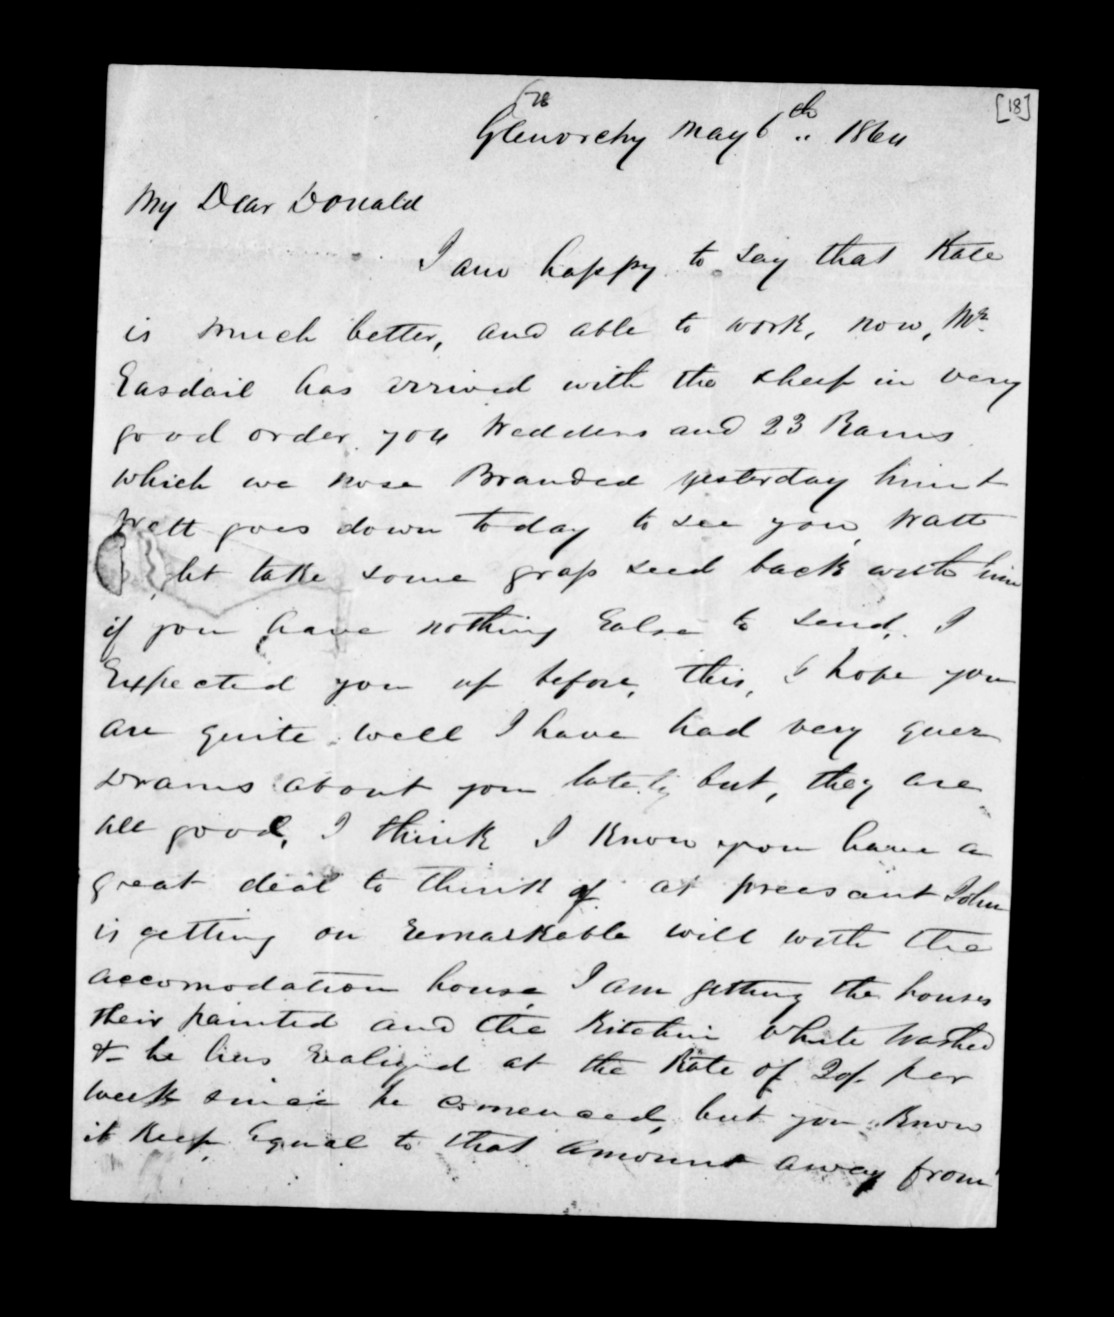 [18]
Glenorchy May 6th 1864
My Dear Donald
I am happy to say that Kate
is much better, and able to work, now, Mr
Easdail has arrived with the sheep in very
good order 704 Wedders and 23 Rams
which we nose Branded yesterday himt
Watt goes down today to see you, Watt
ht take some grap seed back with him
if you have nothing Ealse to send, I
Expected you up before, this, I hope you
are quite well I have had very quer
Drams about you lately but, they are
all good, I think I know you have a
great deal to think of at preesant John
is getting on remarkable will with the
accomodation house I am getting the houses
their painted and the Kitchin White Washed
& he has Ealized at the Rate of 20/- per
week since he comenced, but you know
it keep Equal to that amount away from